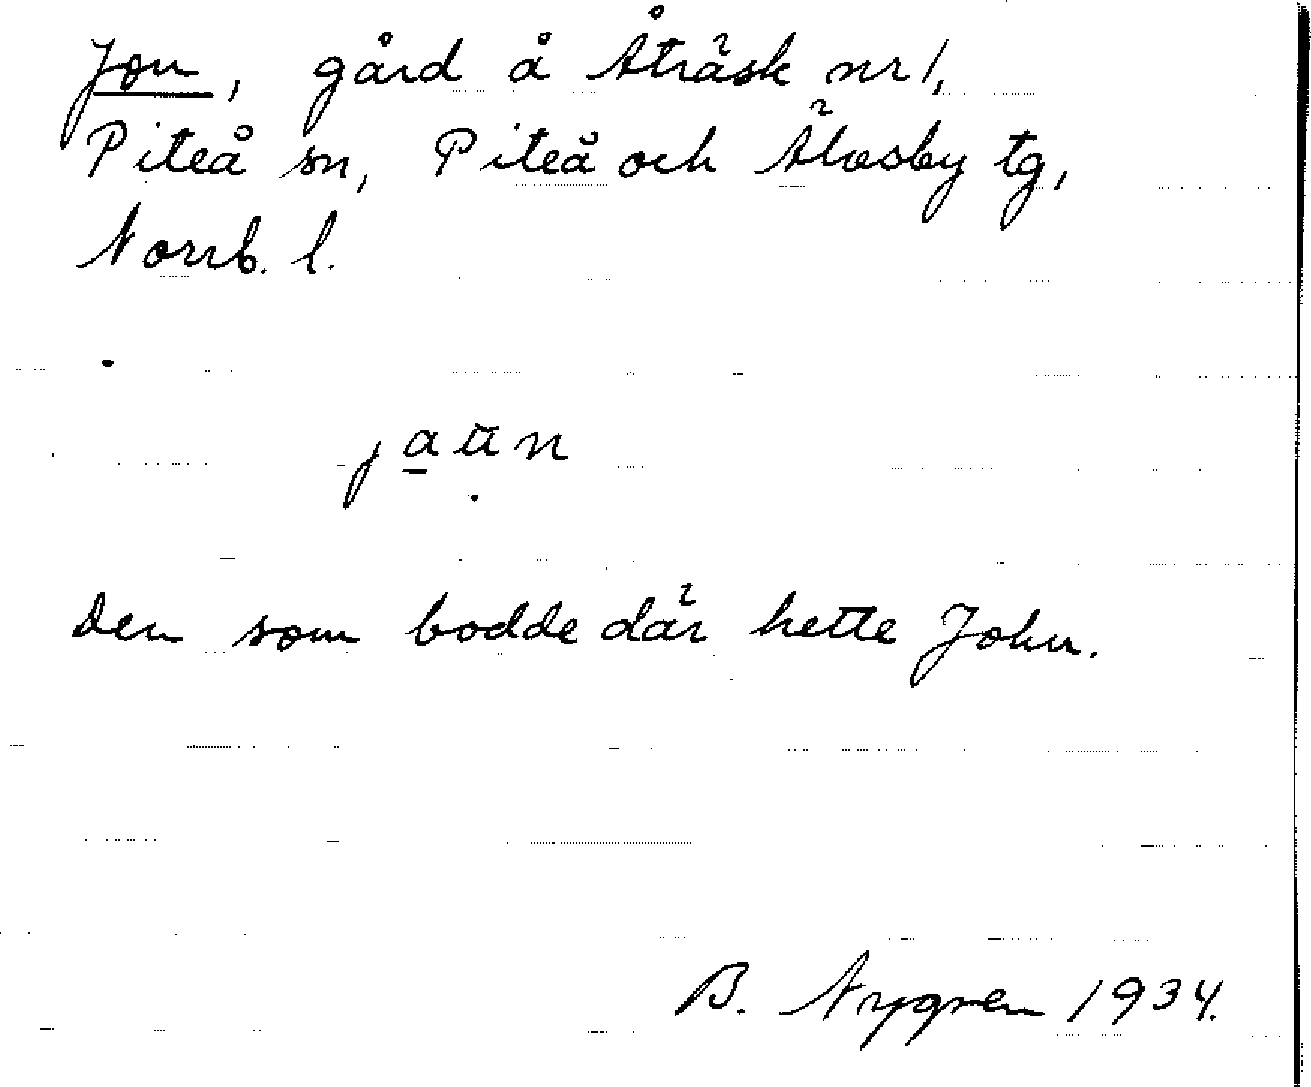 Jon, gård å Åträsk nr 1,
Piteå sn, Piteå och Älvsby tg,
Norrb. l.
jaun
Den som bodde där hette John.
B. Nygren 1934.